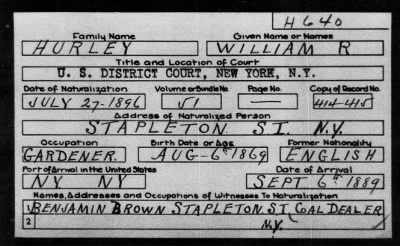 H640
Family Name Given Name or Names
HURLEY WILLIAM R
Title and Location of Court
U. S. DISTRICT COURT, NEW YORK, N.Y.
Date of Naturalization Volume or Bundle No. Page No. Copy of Record No.
JULY 27-1896 51 — 414-415
Address of Naturalized Person
STAPLETON S.I. N.Y.
Occupation Birth Date or Age Former Nationality
GARDENER. AUG-6th 1869 ENGLISH
Port of Arrival in the United States Date of Arrival
NY NY SEPT 6th 1889
Names, Addresses and Occupations of Witnesses To Naturalization
1 BENJAMIN BROWN STAPLETON. S.I. COAL DEALER
2 N.Y.